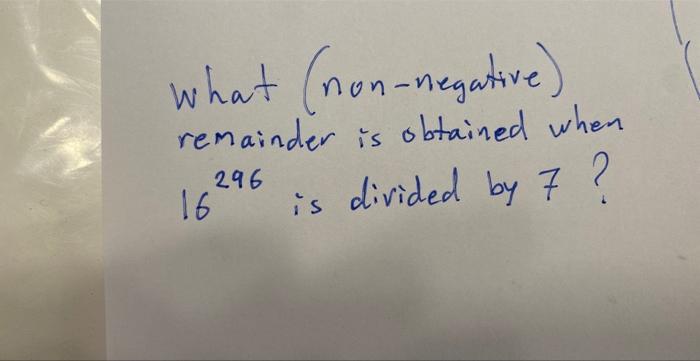 what (non-negative)
remainder is obtained when
16^296 is divided by 7 ?